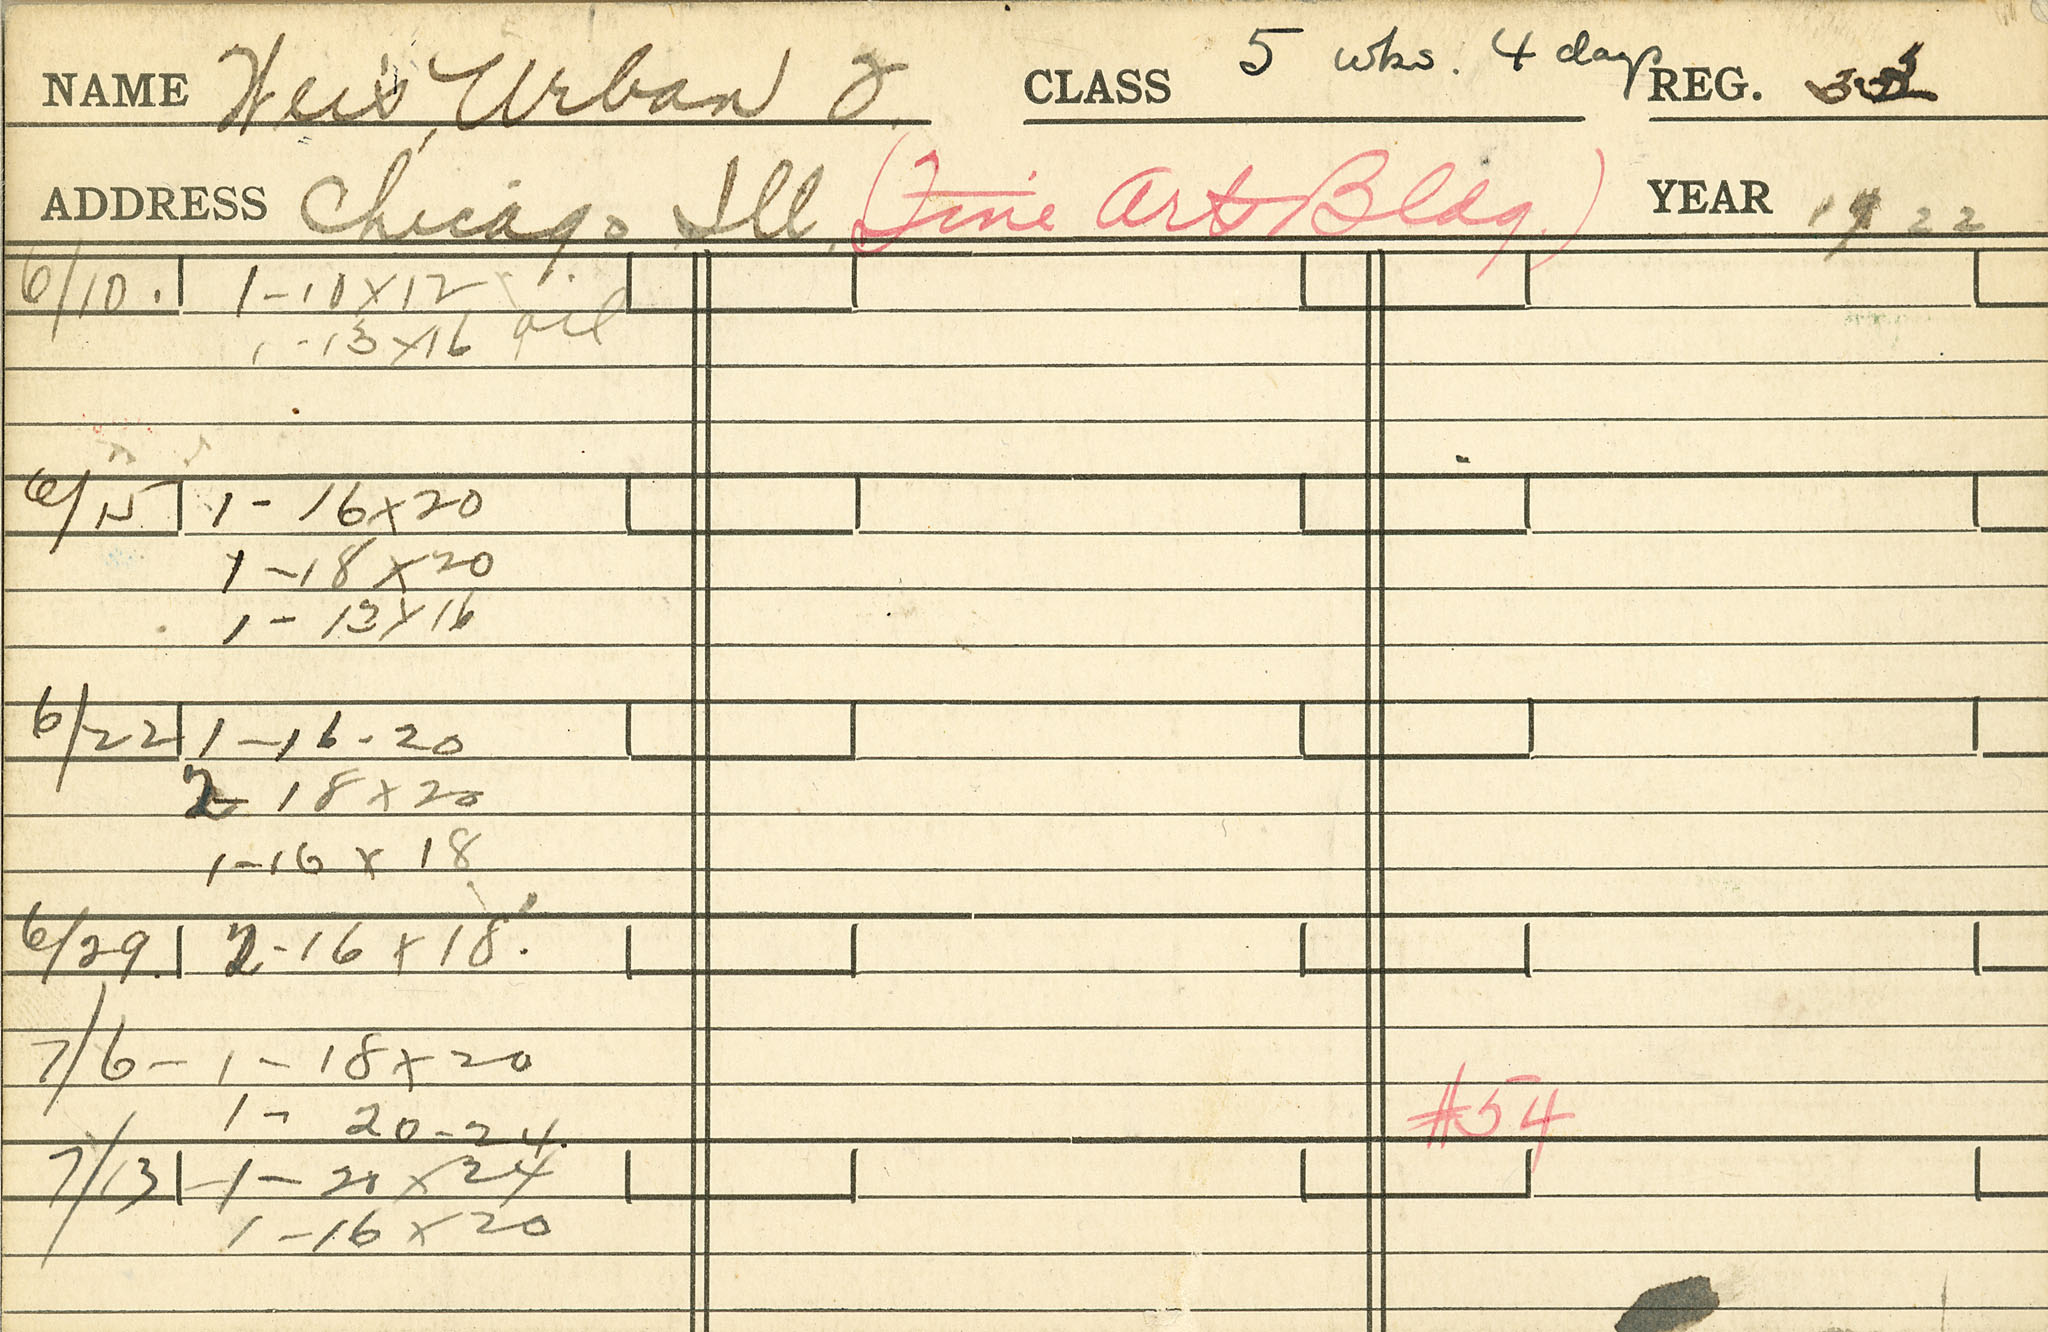 NAME Weis, Urban J. CLASS 5 wks. 4 days REG.
ADDRESS Chicago Ill. (Fine Arts Bldg.) YEAR 1922
6/10. 1-10x12
1-13x16 oil
6/15 1- 16x20
1-18x20
1- 12x16
6/22 1-16-20
2- 18x20
1-16 x 18
6/29. 2-16 x 18.
7/6- 1- 18x20
1- 20-24.
#54
7/13 -1- 20x24
1-16x20